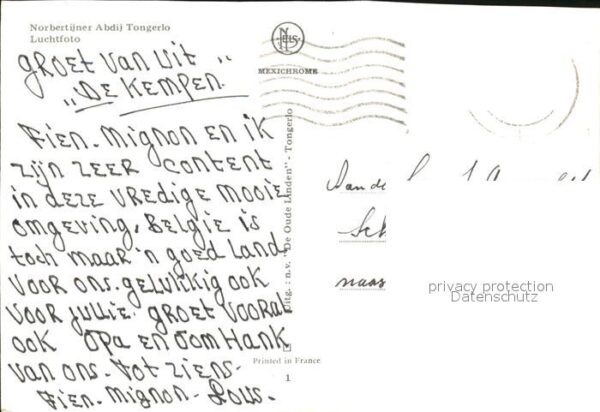 Norbertijner Abdij Tongerlo
Luchtfoto
GROET VAN UIT
"DE KEMPEN.
Fien. Mignon EN ik
zijn zeer content
in deze vredige mooie
omgeving. België is
toch maar 'n goed land
voor ons. gelukkig ook
voor jullie. groet vooral
ook opa en oom Hank
van ons. Tot ziens-
Fien. Mignon - Lous.
NELS
MEXICHROME
Uitg. : n.v. "De Oude Linden" - Tongerlo
Printed in France
1
Aan de
naas
privacy protection
Datenschutz